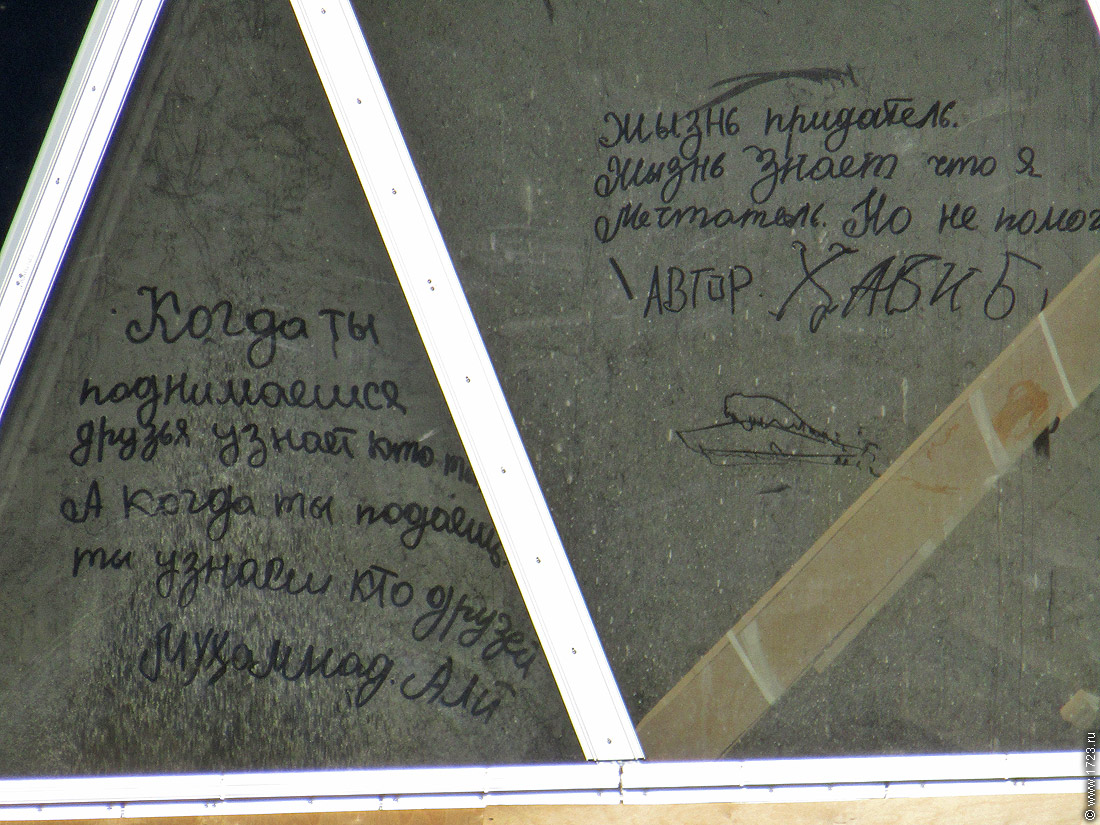 Когда ты
поднимаешся
друзья узнает кто
А когда ты подаешь
ты узнаеш кто друзей
Муҳаммад. Али
Жызнь придатель.
Жызнь знает что я
Мечтатель. Но не помог
АВТОР. ҲАБИБ
© www.1723.ru